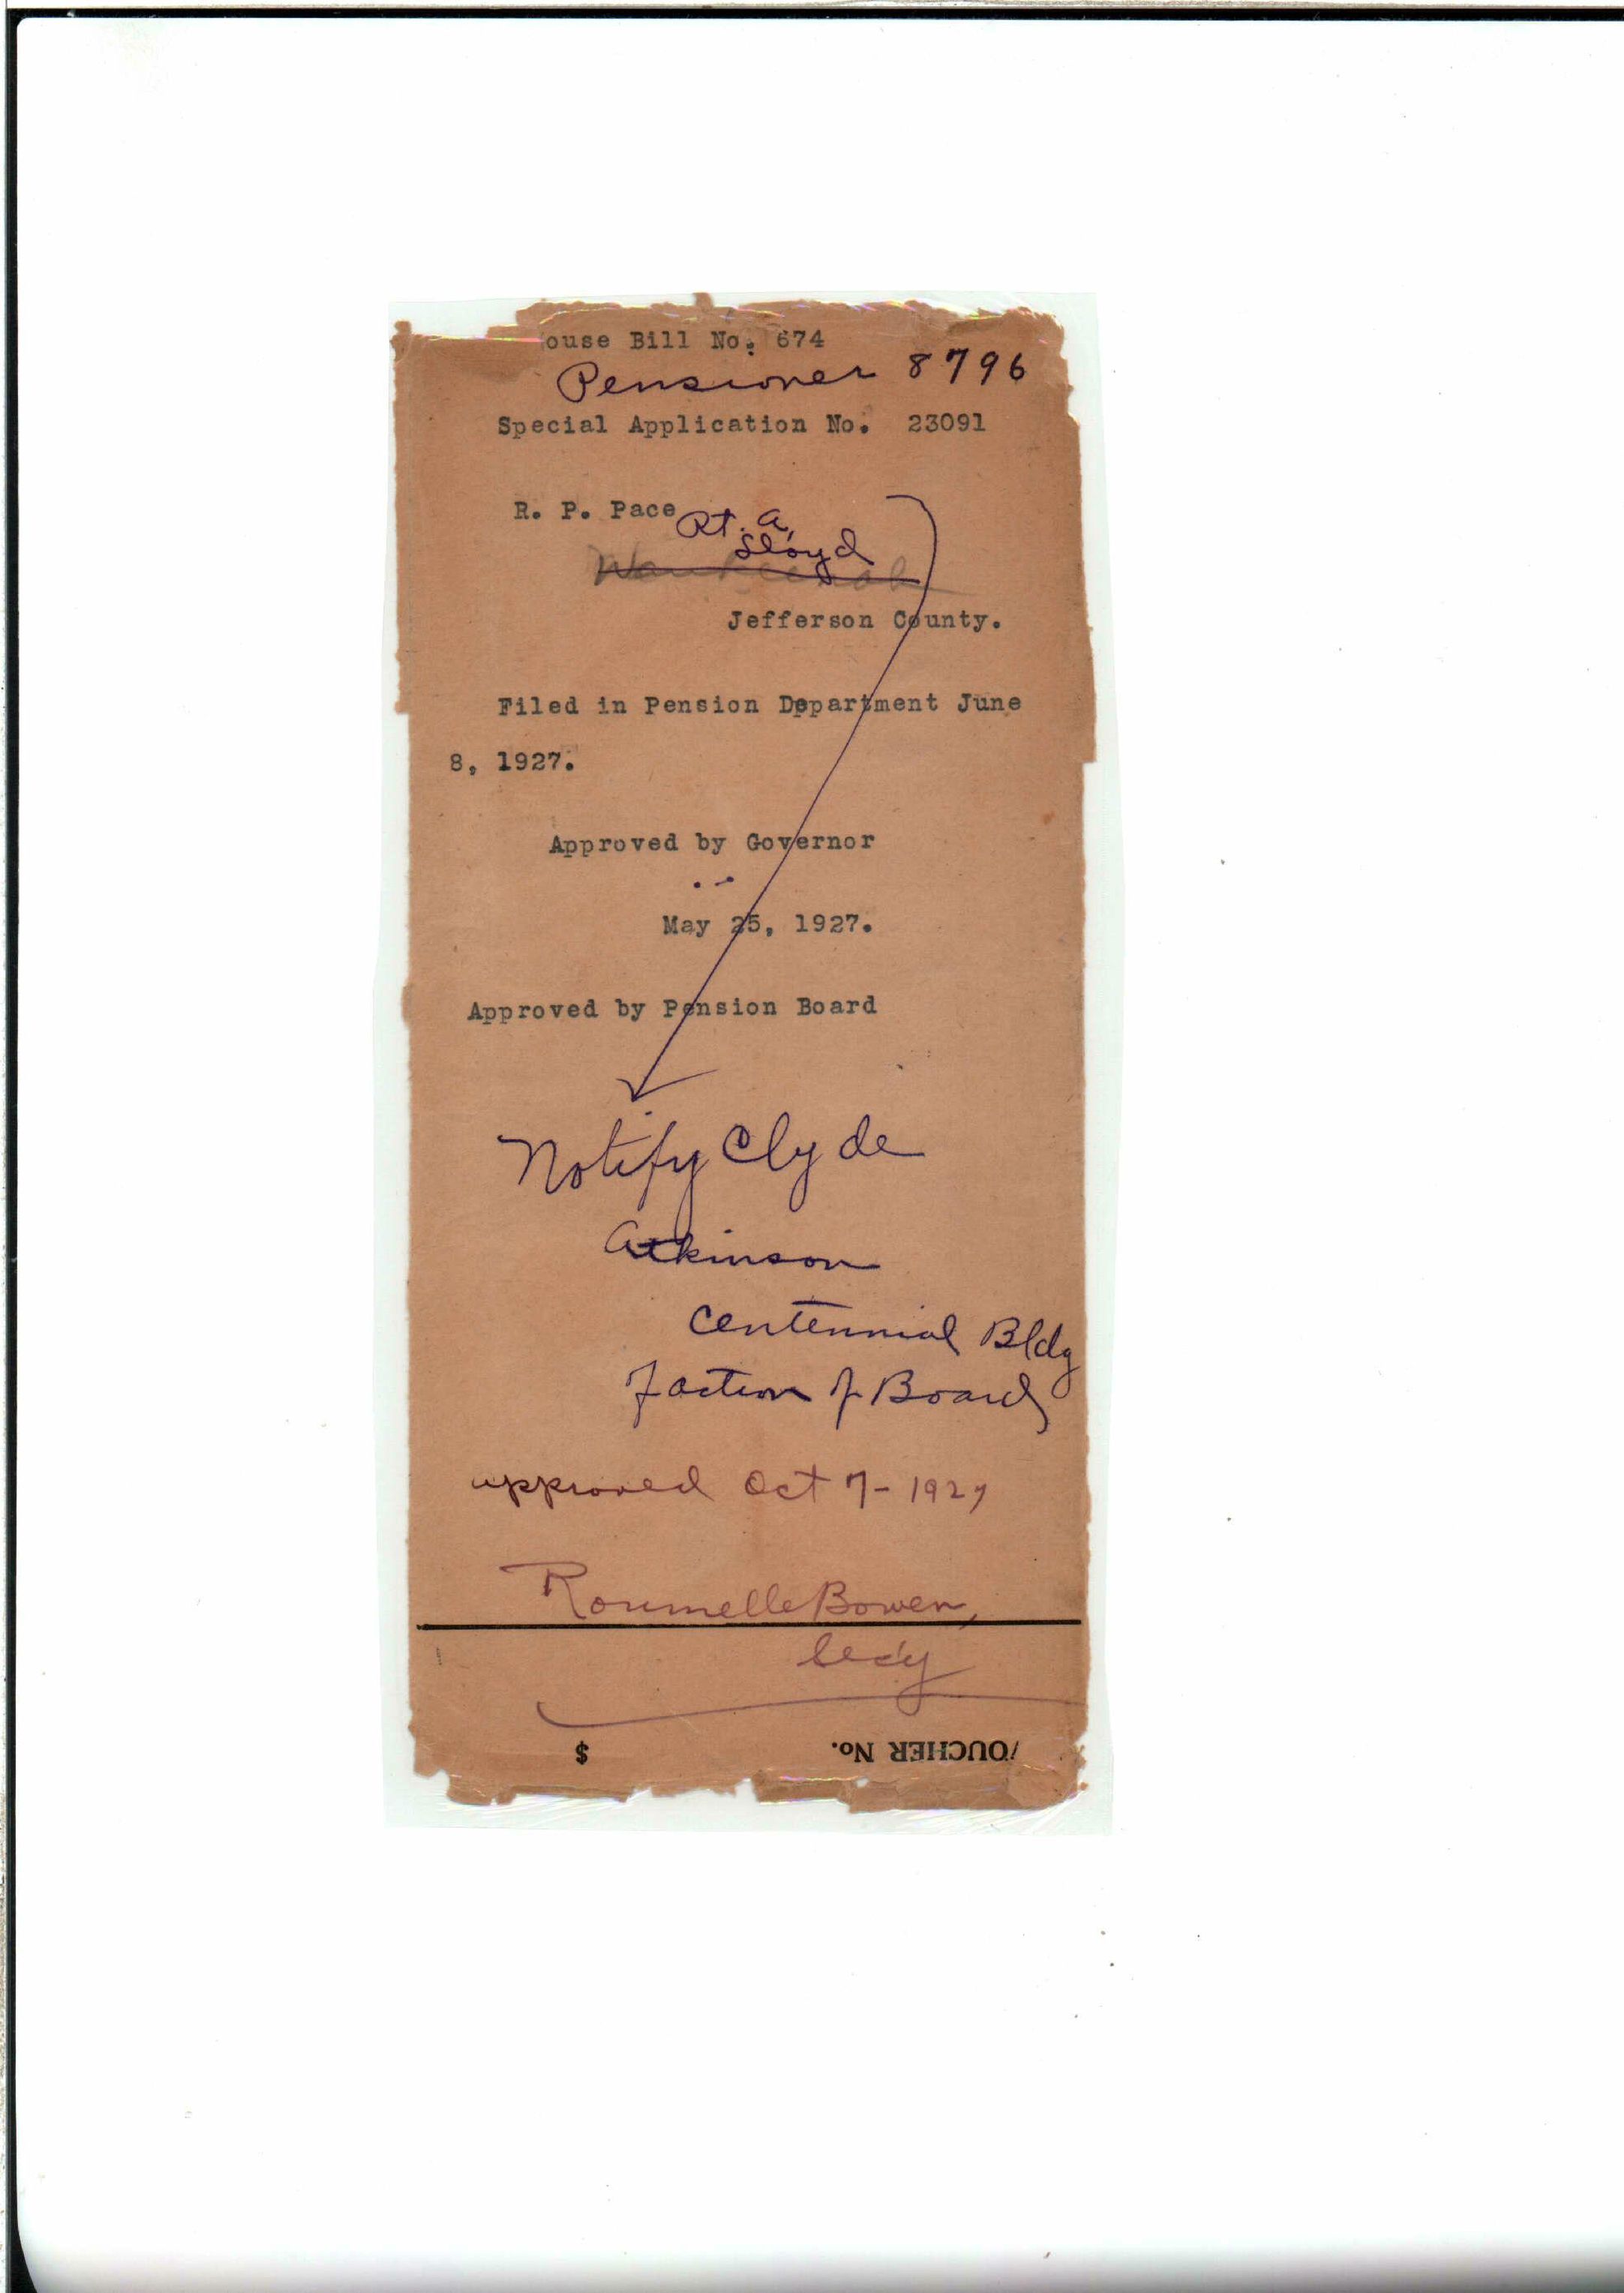 ouse Bill No. 674
Pensioner 8796
Special Application No. 23091
R. P. Pace Rt. a,
Lloyd
Waukeenah
Jefferson County.
Filed in Pension Department June
8, 1927.
Approved by Governor
May 25, 1927.
Approved by Pension Board
Notify Clyde
Atkinson
Centennial Bldg
of action of Board
approved Oct 7-1927
Roumelle Bowen,
Secy
VOUCHER No. $